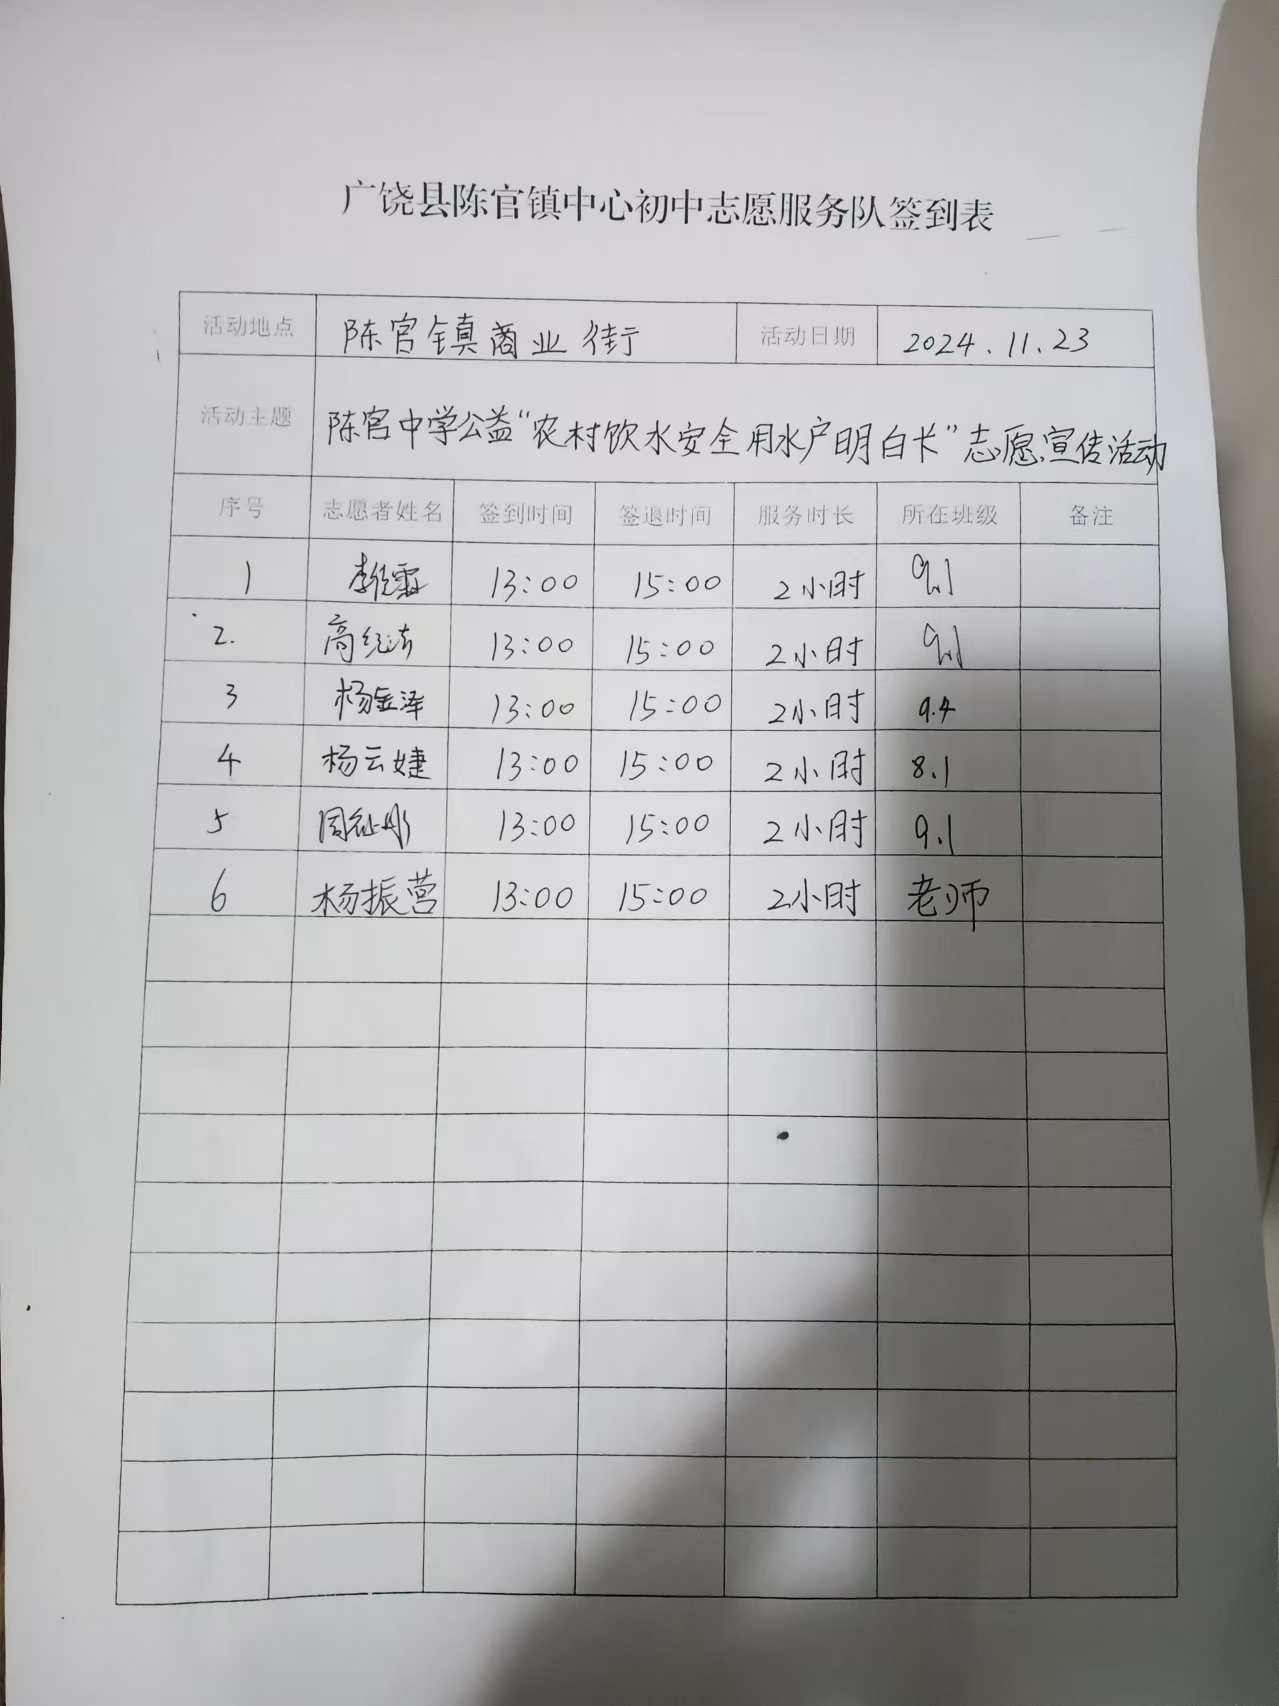 广饶县陈官镇中心初中志愿服务队签到表
活动地点 陈官镇商业街 活动日期 2024.11.23
活动主题 陈官中学公益“农村饮水安全用水户明白卡”志愿宣传活动
序号 志愿者姓名 签到时间 签退时间 服务时长 所在班级 备注
1 13:00 15:00 2小时 9.1
2. 13:00 15:00 2小时 9.1
3 杨金泽 13:00 15:00 2小时 9.4
4 杨云婕 13:00 15:00 2小时 8.1
5 13:00 15:00 2小时 9.1
6 杨振营 13:00 15:00 2小时 老师